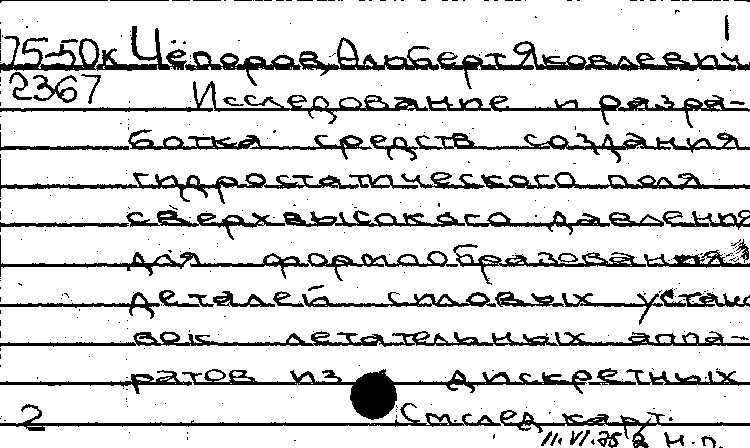 1
75-50к Чёпоров, Альберт Яковлевич.
2367 Исследование и разра-
ботка средств создания
гидростатического поля
сверхвысокого давления
для формообразования
деталей силовых устано
вок летательных аппа-
ратов из дискретных
2 См. след. карт.
11.VI.75 н.п.